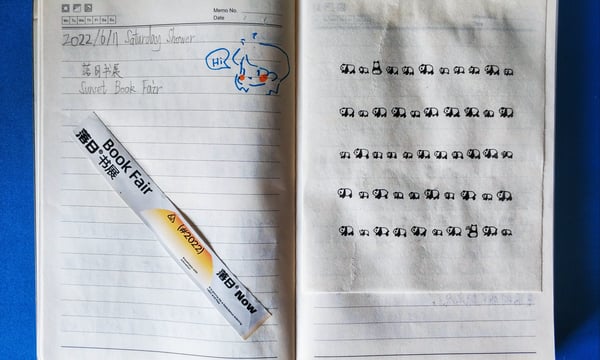 Memo No.
Mo Tu We Th Fr Sa Su
Date / /
2022/6/11 Saturday Shower
Hi
落日书展
Sunset Book Fair
Book Fair
落日®
书展
(#2022)
落日® Now